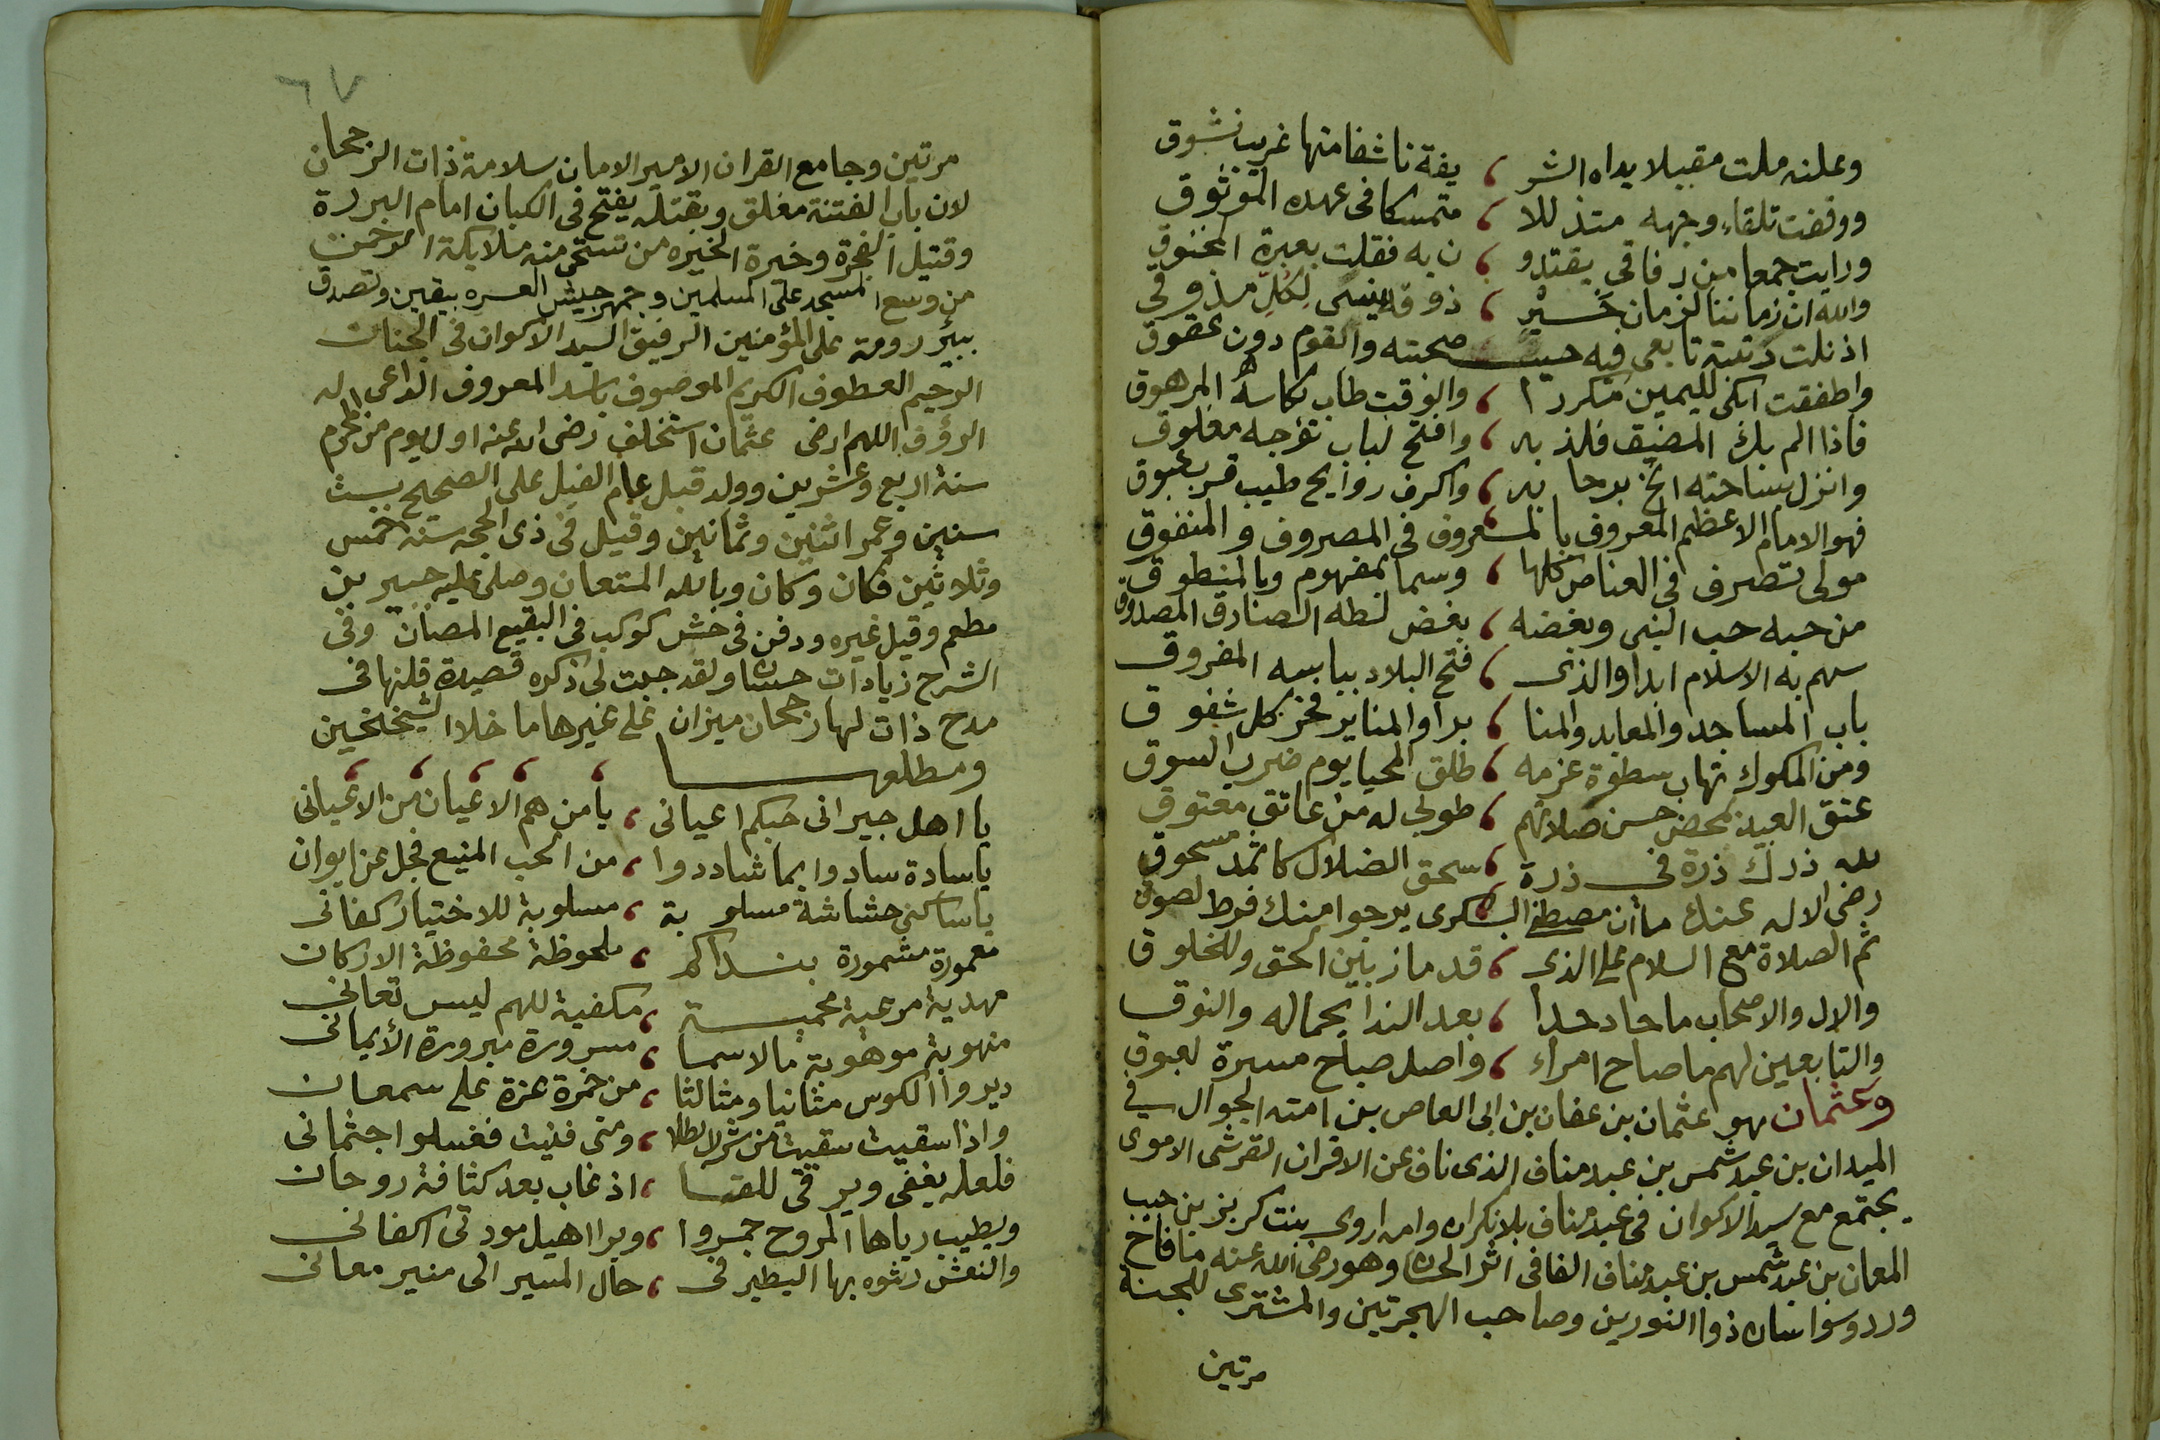 وعلنه ملت مقبيلا يداه الشر ، يفة ناشفا منها غريب نشوق
ووقفت تلقاء وجهه متذللا ، متمسكا في عهده الموثوق
ورايت جمعا من رفاقي يقتدو ، ن به فقلت بعبرة المخنوق
والله ان زماننا لزمان خسير ، ذوقه ينسى لكل مذوق
اذ نلت رتبة تابعي فيه حيث صحبته والقوم دون عقوق
واطفقت ابكي لليمين مكررا ، والوقت طاب بكاسه المرهوق
فاذا الم بك المضيق فلذ به ، وافتح لباب توجه مغلوق
وانزل بساحته انخ برحابه ، واكرف روايح طيب قرب عبوق
فهو الامام الاعظم المعروف بالمعروف في المصروف والمنفوق
مولى تصرف في العناصر كلها ، وسما بمفهوم وبالمنطوق
من حبه حب النبي وبغضه ، بغض لطه الصادق المصدوق
سهم به الاسلام ابدا والذي ، فتح البلاد ببابه المفروق
باب المساجد والمعابد والمنا ، بر والمنابر فخر كل شفوق
ومن الملوك تهاب سطوة عزمه ، طلق المحيا يوم ضرب السوق
عتق العبيد لمحض حسن صلاتهم ، طوبى له من عاتق معتوق
لله درك درة في درة ، سحق الضلال كاثمد مسحوق
رضي الاله عنك ما ان مصطفى البكري يرجو منك فرط لصوق
ثم الصلاة مع السلام على الذي ، قد ماز بين الحق والمخلوق
والال والاصحاب ما حاد حدا ، بعد الندا بجماله والنوق
والتابعين لهم ما صاح امراء ، واصل صباح مسرة لغبوق
وعثمان هو عثمان بن عفان بن ابي العاص بن امته الجوال في
الميدان بن عبد شمس بن عبد مناف الذي ناف عن الاقران القرشي الاموي
يجتمع مع سيد الاكوان في عبد مناف بلا نكران وامه اروى بنت كريز بن حبيب
المعان بن عبد شمس بن عبد مناف القافي اثر الحسان وهو رضي الله عنه ما فاخ
ورد وسوسان ذو النورين وصاحب الهجرتين والمشتري للجنة
مرتين
٦٧
مرتين وجامع القران الامير الامان سلامة ذات الرجحان
لان باب الفتنة مغلق وبقتله يفتح في الكبان امام البررة
وقتيل الفجرة وخيرة الخيره من تستحي منه ملايكة الرحمن
من وسع المسجد على المسلمين وجهز جيش العسره بيقين وتصدق
ببئر رومة على المؤمنين الرفيق السيد الاكوان في الجنان
الرحيم العطوف الكريم الموصوف باسد المعروف الداعي له
الرؤف اللهم ارض عثمان استخلف رضي الله عنه اول يوم من المحرم
سنة اربع وعشرين وولد قبل عام الفيل على الصحيح بست
سنين وعمر اثنين وثمانين وقيل في ذي الحجه سنة خمس
وثلاثين فكان وكان وبالله المستعان وصلى عليه جبير بن
مطعم وقيل غيره ودفن في حش كوكب في البقيع المصان وفي
الشرح زيادات حسان ولقد جبت لي ذكره قصيدة قلتها في
مدح ذات لها رجحان ميزان على غيرها ما خلا الشيخين
ومطلعها
يا اهل جيراني حبكم اعياني ، يا من هم الاعيان من الاعياني
يا سادة سادوا بما شادوا ، من الحب المنيع فجل عن ايوان
يا ساكني حشاشة مسلوبة ، مسلوبة للاختيار كفاني
معمورة مشمورة بنداكم ، ملحوظة محفوظة الاركان
مهدية مرعية محمية ، مكفية للهم ليس تعاني
منهوبة موهوبة بالاسما ، مسرورة مبرورة الأيماني
ديروا الكوس مثانيا ومثالثا ، من خمرة عزة على سمعان
واذا سقيت سقيت من شرب الطلا ، ومتى فنيت فغسلوا جثماني
فلعله يغفى ويرقى للقا ، اذ غاب بعد كثافة روحان
وبطيب رياها المروح جمروا ، وبرا اهيل مودتي اكفاني
والنعش رشوه بها اليطير في ، حال المسير الى منير معاني